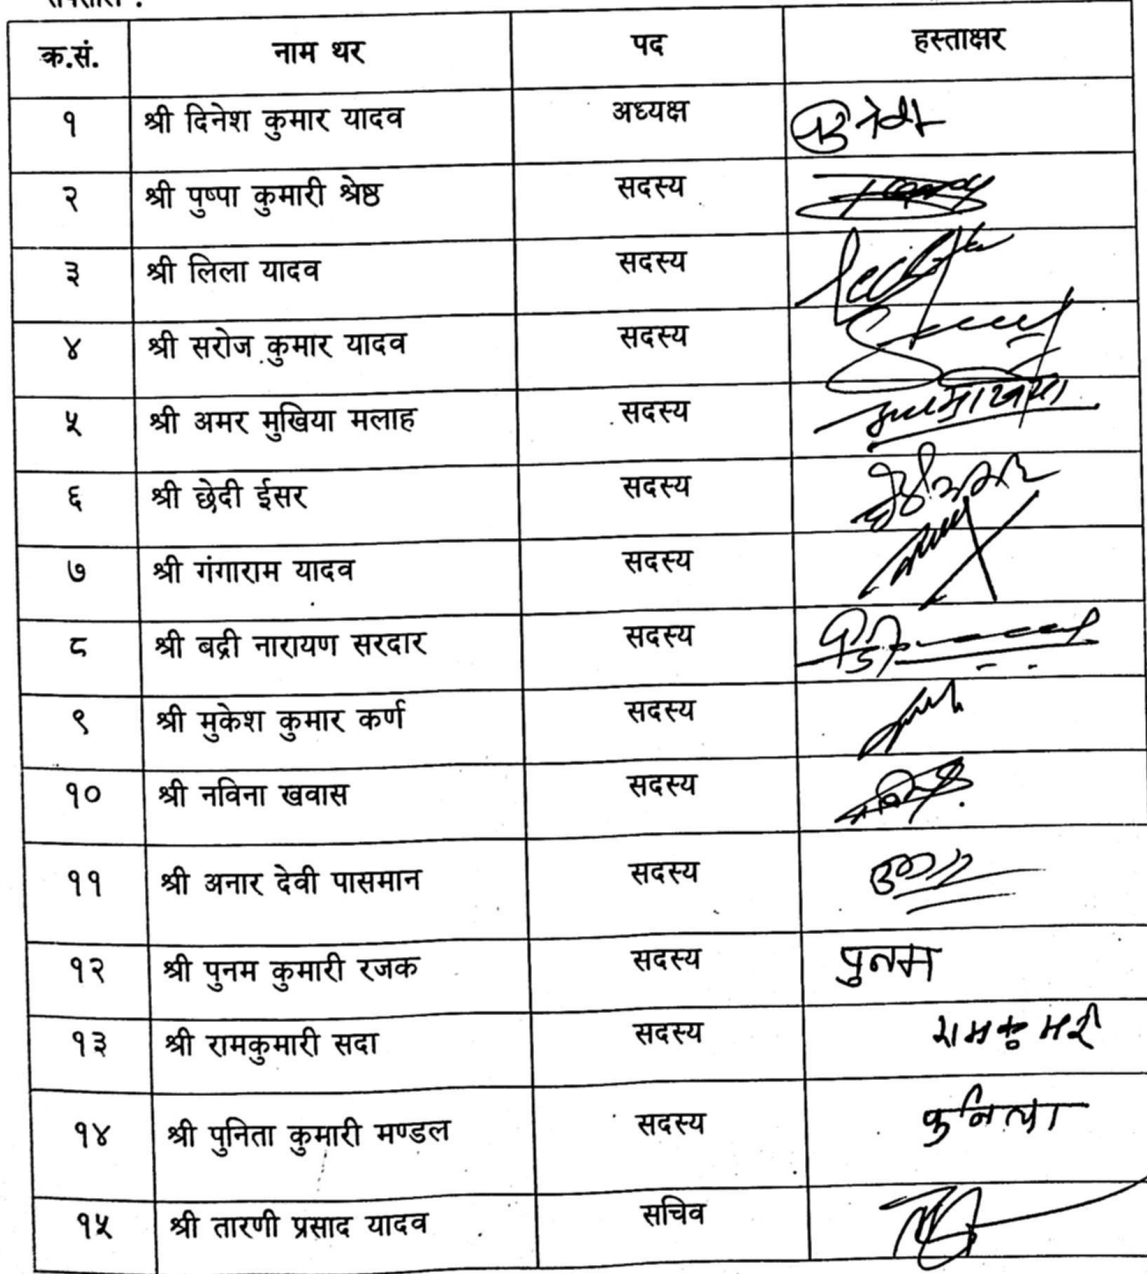 क्र.सं. नाम थर पद हस्ताक्षर
१ श्री दिनेश कुमार यादव अध्यक्ष
२ श्री पुष्पा कुमारी श्रेष्ठ सदस्य
३ श्री लिला यादव सदस्य
४ श्री सरोज कुमार यादव सदस्य
५ श्री अमर मुखिया मलाह सदस्य
६ श्री छेदी ईसर सदस्य
७ श्री गंगाराम यादव सदस्य
८ श्री बद्री नारायण सरदार सदस्य
९ श्री मुकेश कुमार कर्ण सदस्य
१० श्री नविना खवास सदस्य
११ श्री अनार देवी पासमान सदस्य
१२ श्री पुनम कुमारी रजक सदस्य पुनम
१३ श्री रामकुमारी सदा सदस्य
१४ श्री पुनिता कुमारी मण्डल सदस्य
१५ श्री तारणी प्रसाद यादव सचिव